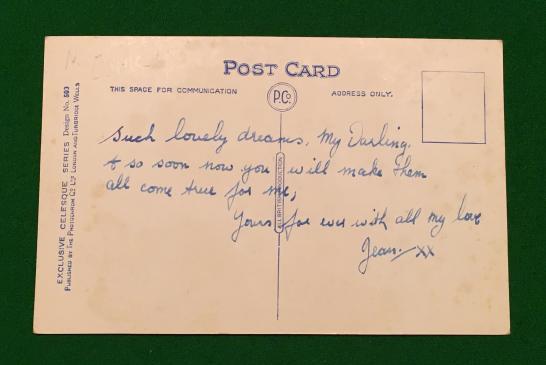 POST CARD
THIS SPACE FOR COMMUNICATION
P.Co.
ADDRESS ONLY.
Such lovely dreams, My Darling.
& so soon now you will make them
all come true for me,
Yours for ever with all my love
Jean. xx
ALL BRITISH PRODUCTION
EXCLUSIVE CELESQUE SERIES Design No. 603
PUBLISHED BY THE PHOTOCHROM CO. LTD. LONDON AND TUNBRIDGE WELLS